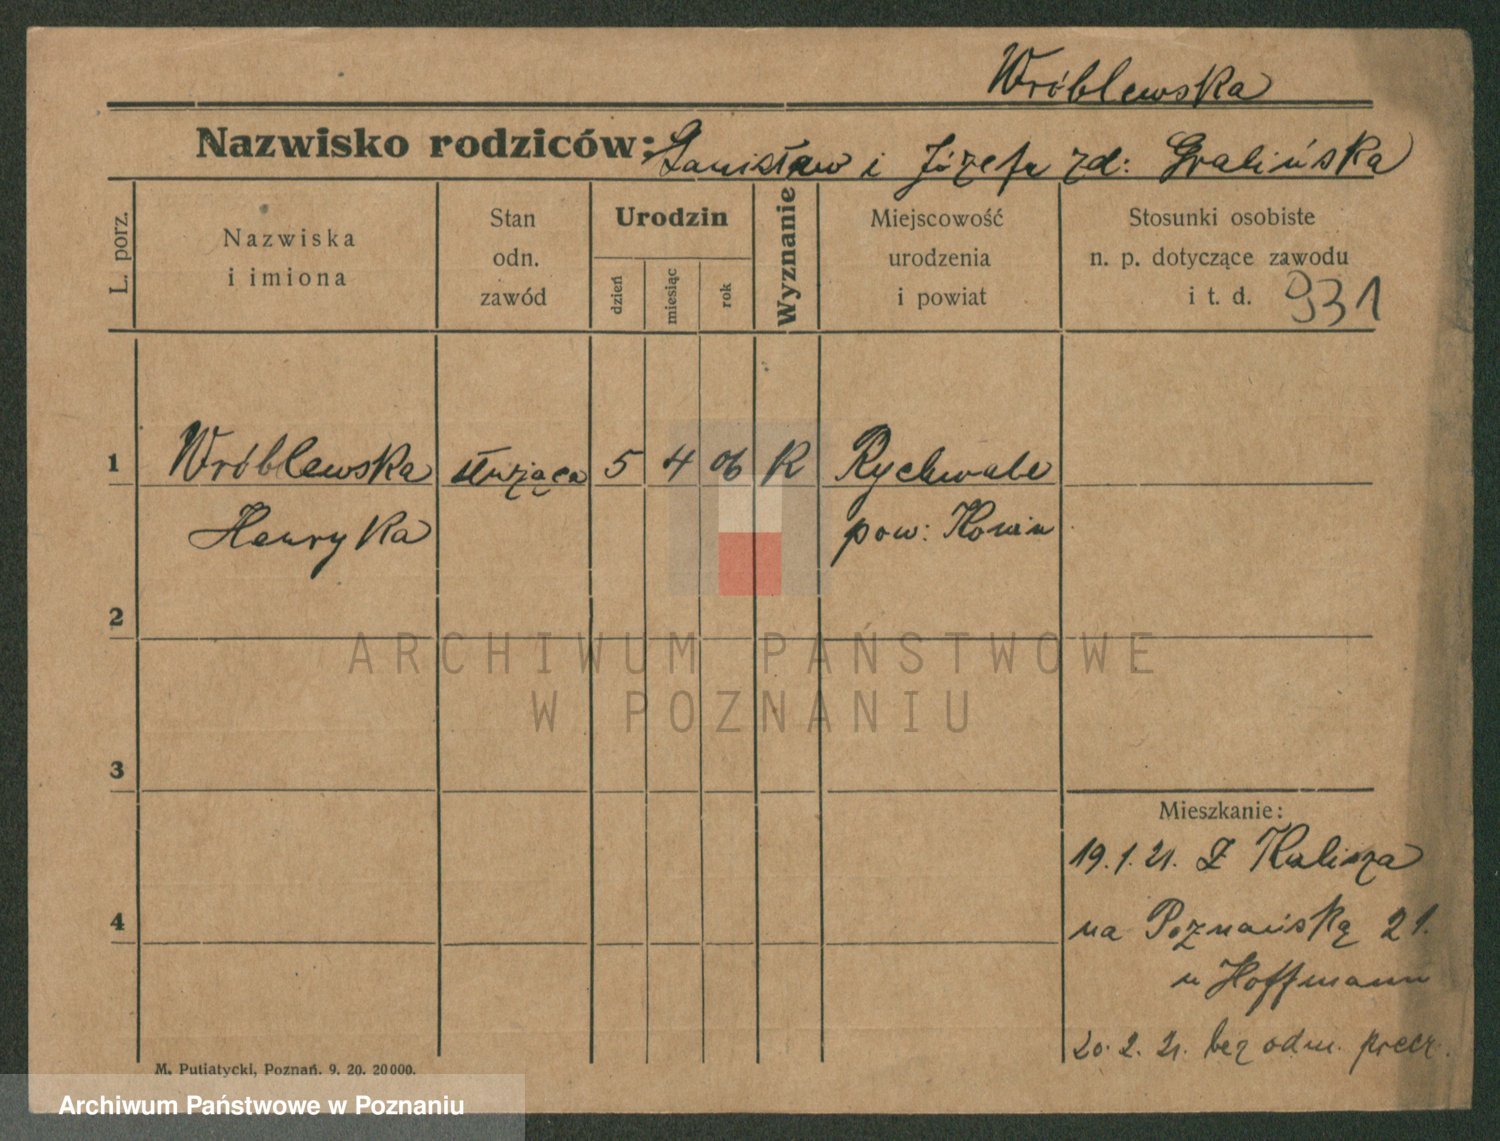 Wróblewska
Nazwisko rodziców: Stanisław i Józefa zd: Gralińska
L. porz.
Nazwiska
i imiona
Stan
odn.
zawód
Urodzin
dzień
miesiąc
rok
Wyznanie
Miejscowość
urodzenia
i powiat
Stosunki osobiste
n. p. dotyczące zawodu
i t. d. 931
1 Wróblewska służąca 5 4 06 K Rychwale
Henryka pow: Konin
2
ARCHIWUM PAŃSTWOWE
W POZNANIU
3
Mieszkanie:
19.1.21. Z Kalisza
4
na Poznańską 21.
u Hoffmann
20.2.21. bez odm. precz.
M. Putiatycki, Poznań. 9. 20. 20000.
Archiwum Państwowe w Poznaniu